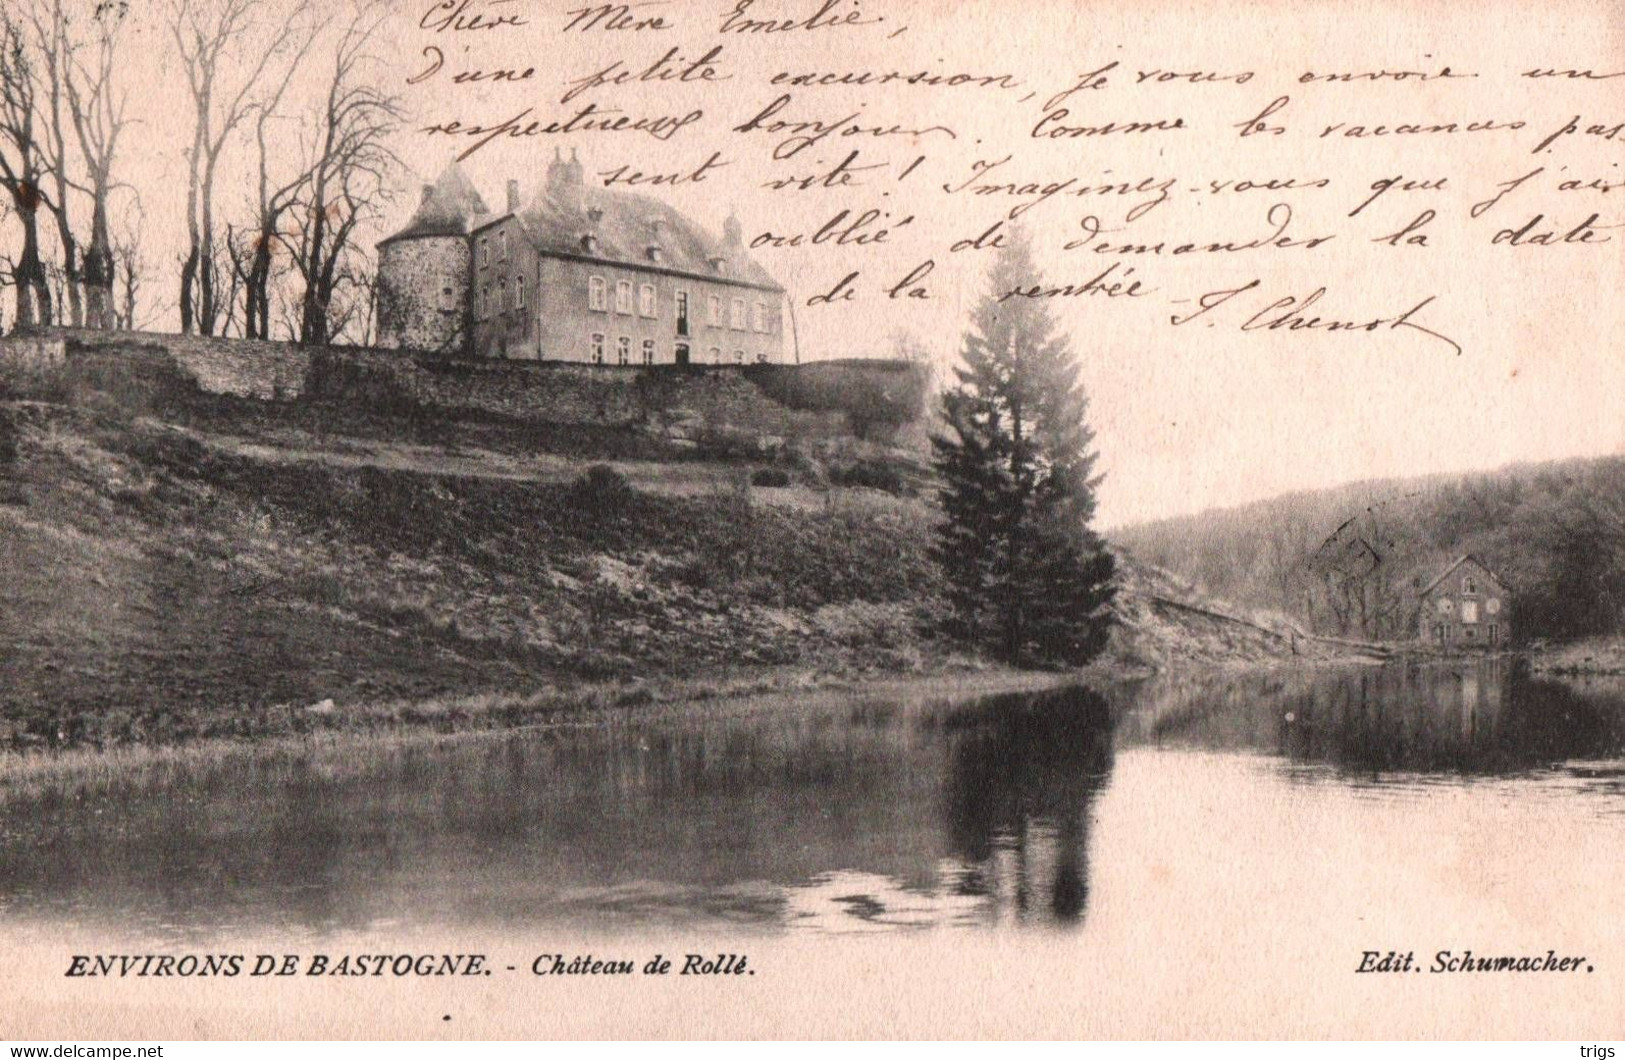 Chère Mère Emelie,
D'une petite excursion, je vous envoie un
respectueux bonjour. Comme les vacances pas-
sent vite! Imaginez-vous que j'ai
oublié de demander la date
de la rentrée
J. Chenot
ENVIRONS DE BASTOGNE. - Château de Rollé.
Edit. Schumacher.
www.delcampe.net
trigs